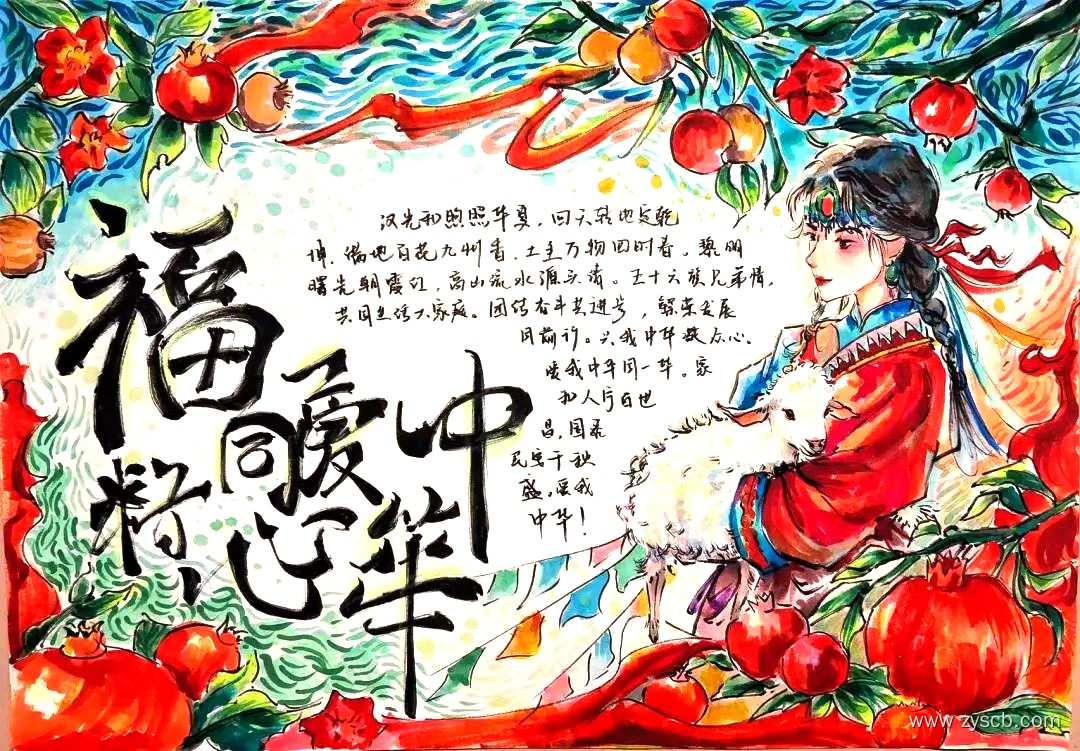 福籽同心爱中华
汉光和煦照华夏，回天转地定乾
坤，满地百花九州香，土生万物四时春。黎明
曙光朝霞红，高山流水源头清。五十六族兄弟情，
共同生活大家庭。团结奋斗共进步，繁荣发展
同前行。兴我中华聚众心。
爱我中华同一华。家
和人宁百世
昌，国泰
民安千秋
盛，爱我
中华！
www.zyscb.com